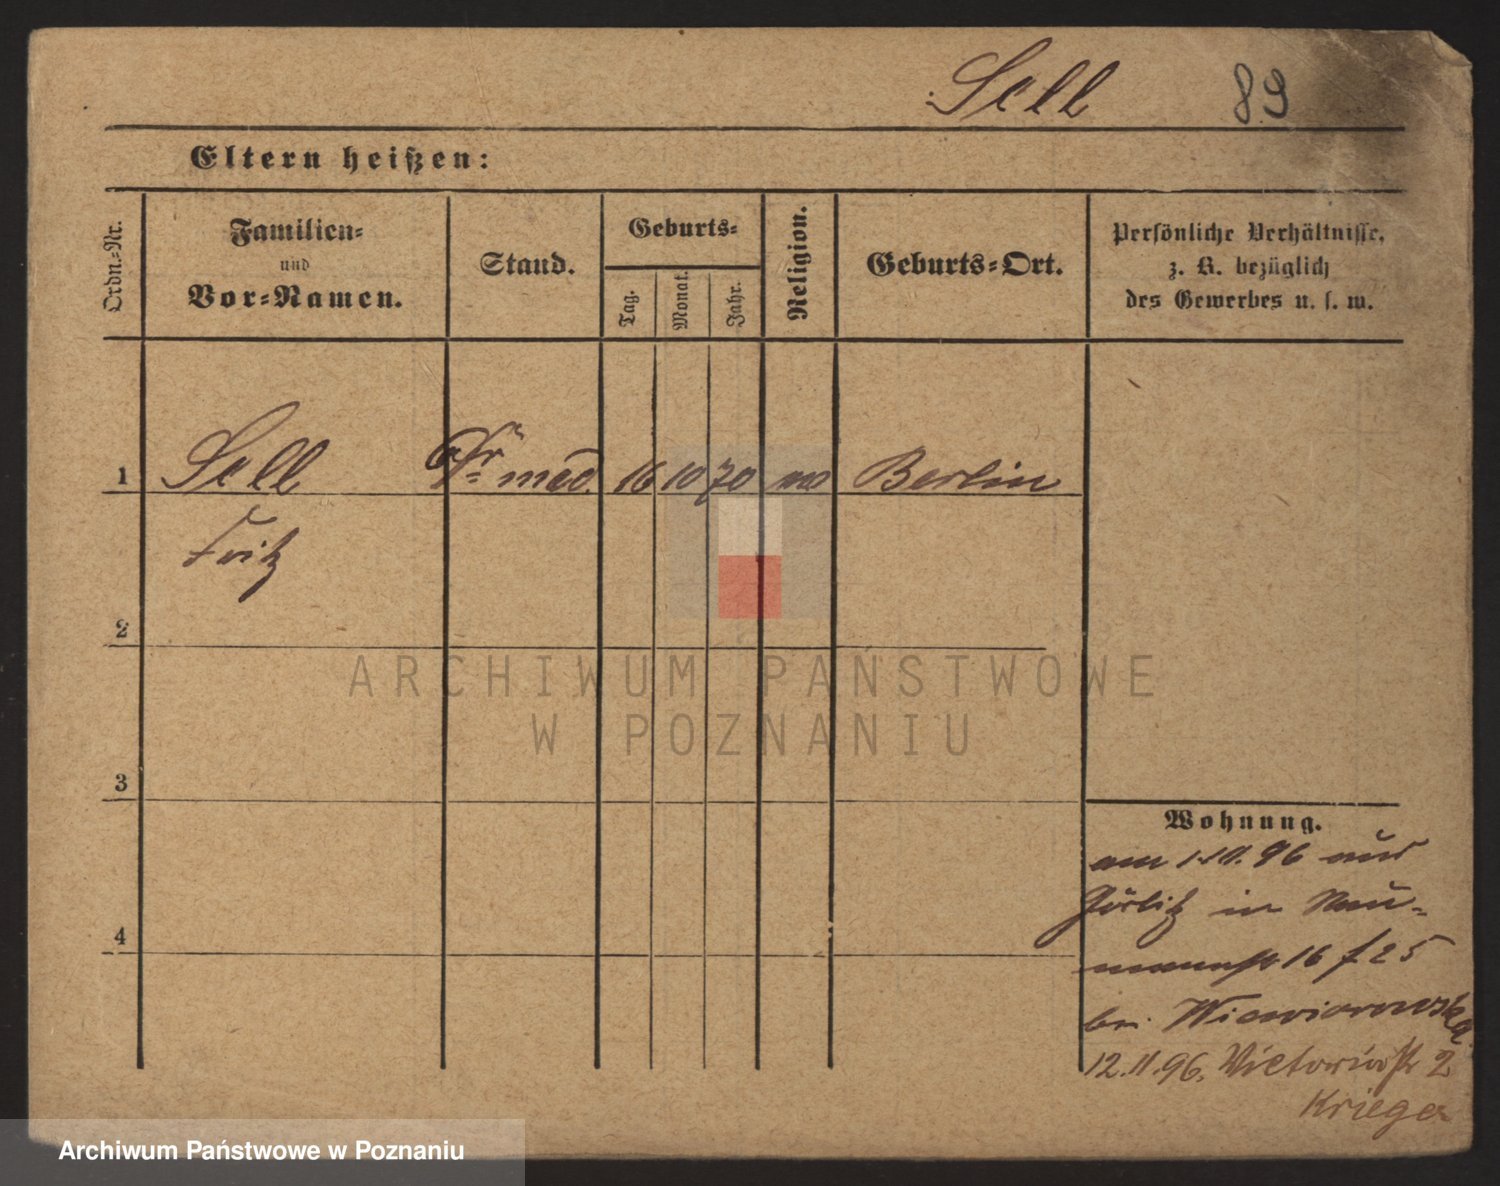 Sell 89
Eltern heißen:
Ordn.-Nr.
Familien-
und
Vor-Namen.
Stand.
Geburts-
Tag.
Monat.
Jahr.
Religion.
Geburts-Ort.
Persönliche Verhältnisse,
z. B. bezüglich
des Gewerbes u. s. w.
1 Sell Dr. med. 16 10 70 Berlin
Fritz
2
3
4
Wohnung.
am 1.11.96 aus
Görlitz in Nau-
mannstr 16 f 25
bei Wiewiorowska
12.11.96. Victoriastr 2
Krieger
ARCHIWUM PAŃSTWOWE
W POZNANIU
Archiwum Państwowe w Poznaniu